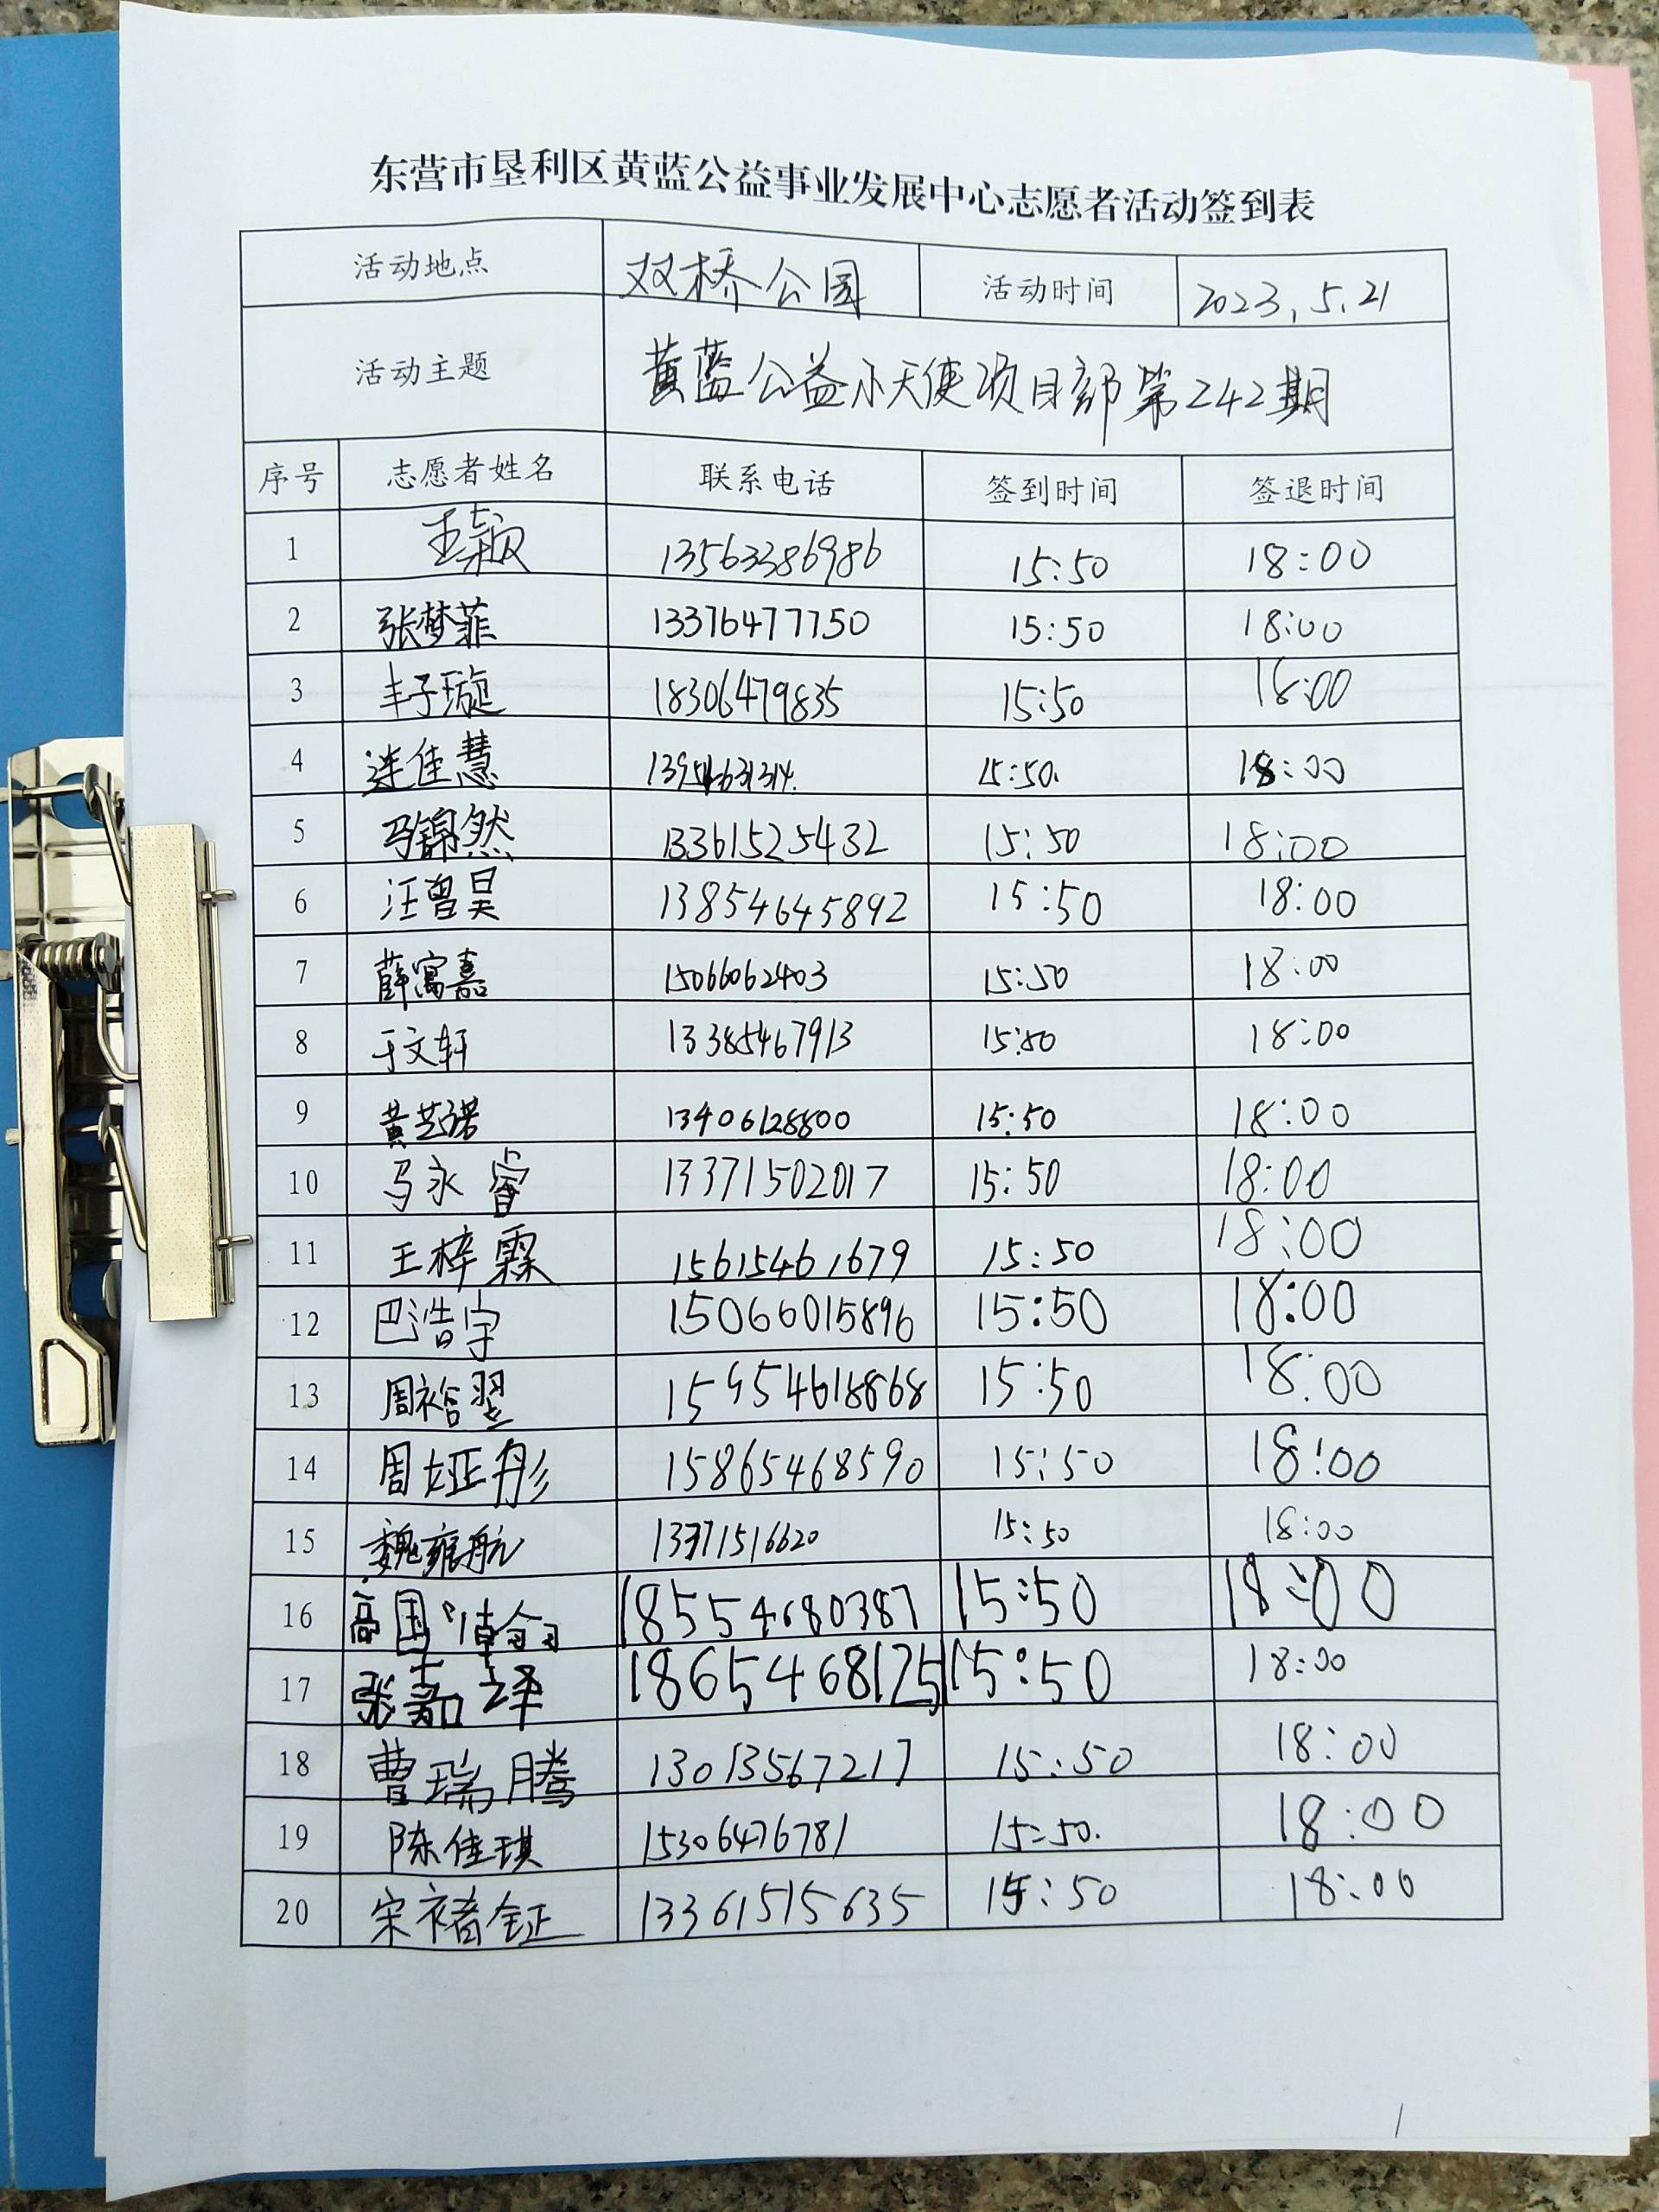 东营市垦利区黄蓝公益事业发展中心志愿者活动签到表
活动地点 双桥公园 活动时间 2023.5.21
活动主题 黄蓝公益小天使项目部第242期
序号 志愿者姓名 联系电话 签到时间 签退时间
1 王颖 13563386986 15:50 18:00
2 张梦菲 13376477750 15:50 18:00
3 丰子璇 18306479835 15:50 18:00
4 连佳慧 15:50. 18:00
5 马锦然 13361525432 15:50 18:00
6 汪曾昊 13854645892 15:50 18:00
7 薛富嘉 15066062403 15:50 18:00
8 于文轩 13385467913 15:50 18:00
9 黄艺诺 13406128800 15:50 18:00
10 马永睿 13371502017 15:50 18:00
11 王梓霖 15615461679 15:50 18:00
12 巴浩宇 15066015896 15:50 18:00
13 周裕翌 15954618868 15:50 18:00
14 周娅彤 15865468590 15:50 18:00
15 魏雍航 13371516620 15:50 18:00
16 高国 18554680387 15:50 18:00
17 张嘉译 1865468125 15:50 18:00
18 曹瑞腾 13013567217 15:50 18:00
19 陈佳琪 15306476781 15:50. 18:00
20 宋褚钲 13361515635 15:50 18:00
1